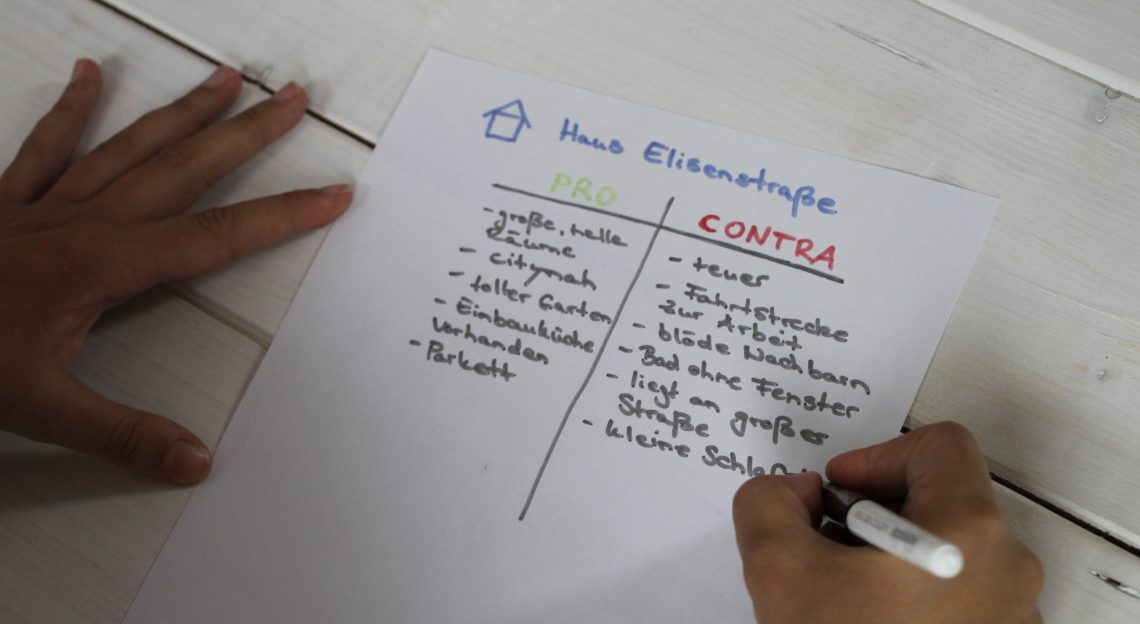 Haus Elisenstraße
PRO
- große, helle
Räume
- citynah
- toller Garten
- Einbauküche
vorhanden
- Parkett
CONTRA
- teuer
- Fahrtstrecke
zur Arbeit
- blöde Nachbarn
- Bad ohne Fenster
- liegt an großer
Straße
- kleine